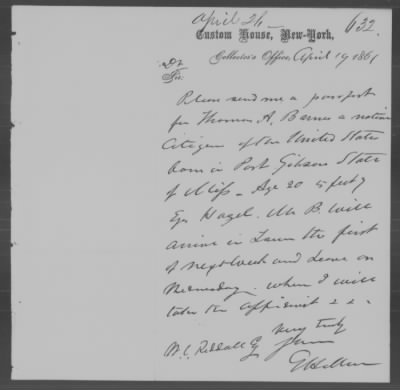 April 24
632
Custom House, New-York,
Collector's Office, April 19 1861
Dr
Sir:
Please send me a passport
for Thomas A. Barnes a native
Citizen of the United States
born in Port Gibson State
of Miss - Age 20 5 feet 9
Eyes Hazel. Mr B. will
arrive in Town the first
of next week and leave on
Wednesday. when I will
take the affidavit
very truly
Yours